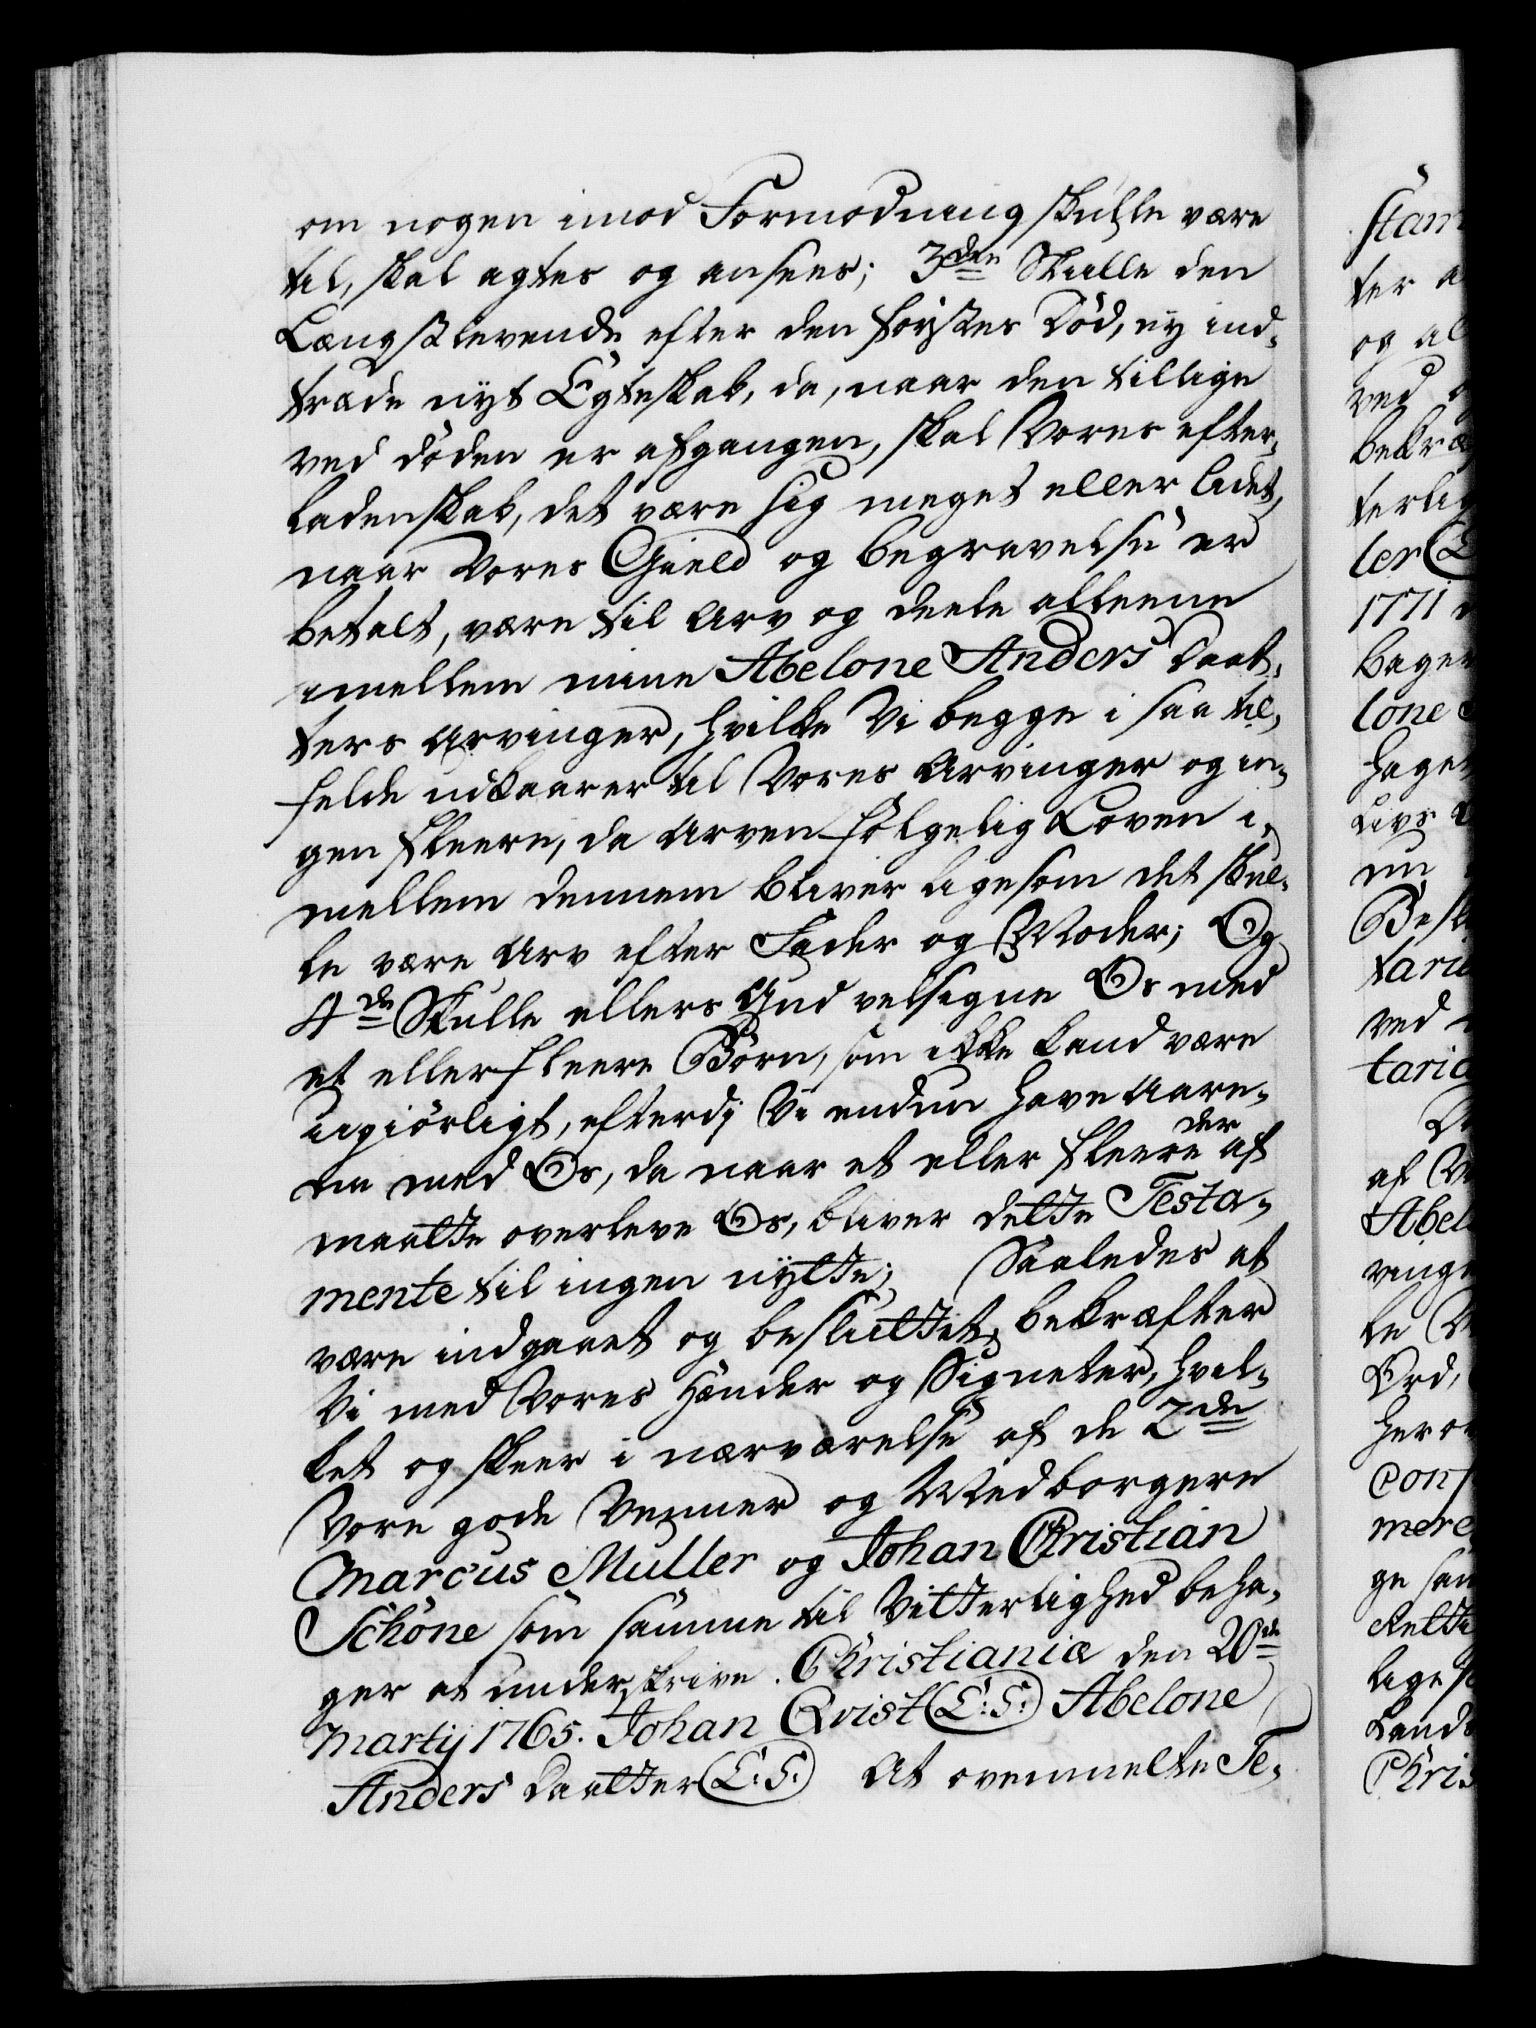 om nogen imod Formodning skulle være
til, skal agtes og ansees; 3den Skulle den
Længstlevende efter den førstes Død, ny ind-
træde nyt Egteskab, da, naar den tillige
ved døden er afgangen, skal Vores efter-
ladenskab, det være sig meget eller lidet,
naar Vores Gield og begravelse er
betalt, være til Arv og deele alleene
imellem mine Abelone Anders Daat-
ters Arvinger, hvilke Vi begge i saa til-
felde udkaarer til Vores Arvinger og in-
gen fleere, da Arven følgelig Loven i-
mellem dennem bliver ligesom det skul-
le være Arv efter Fader og Moder; Og
4de Skulle ellers Gud velsigne Os med
et eller fleere Børn, som ikke kand være
ugiørligt, efterdj Vi endnu have Aare-
ne med Os, da naar et eller fleere der af
maatte overleve Os, bliver dette Testa-
mente til ingen nytte; Saaledes at
være indgaaet og besluttet, bekræfter
Vi med Vores Hænder og Signeter, hvil-
ket og skeer i nærværelse af de 2de
Vore gode Venner og Medborgere
Marcus Muller og Johan Christian
Schöne som samme til Vitterlighed beha-
ger at underskrive. Christianiæ den 20de
Martij 1765. Johan Qvist (L:S:) Abelone
Anders Daatter (L:S:) At ovenmelte Te-